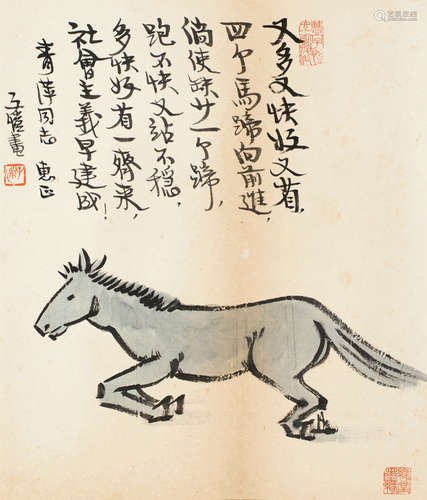 又多又快好又省，
四个馬蹄向前進，
倘使缺少一个蹄，
跑不快又站不稳，
多快好省一齊来，
社會主義早建成！
青萍同志 惠正
子愷畫